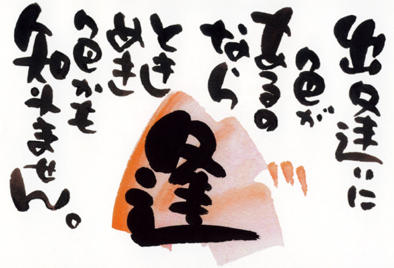 出逢いに
色が
あるの
なら
ときし
めき
色かも
知れません。
逢